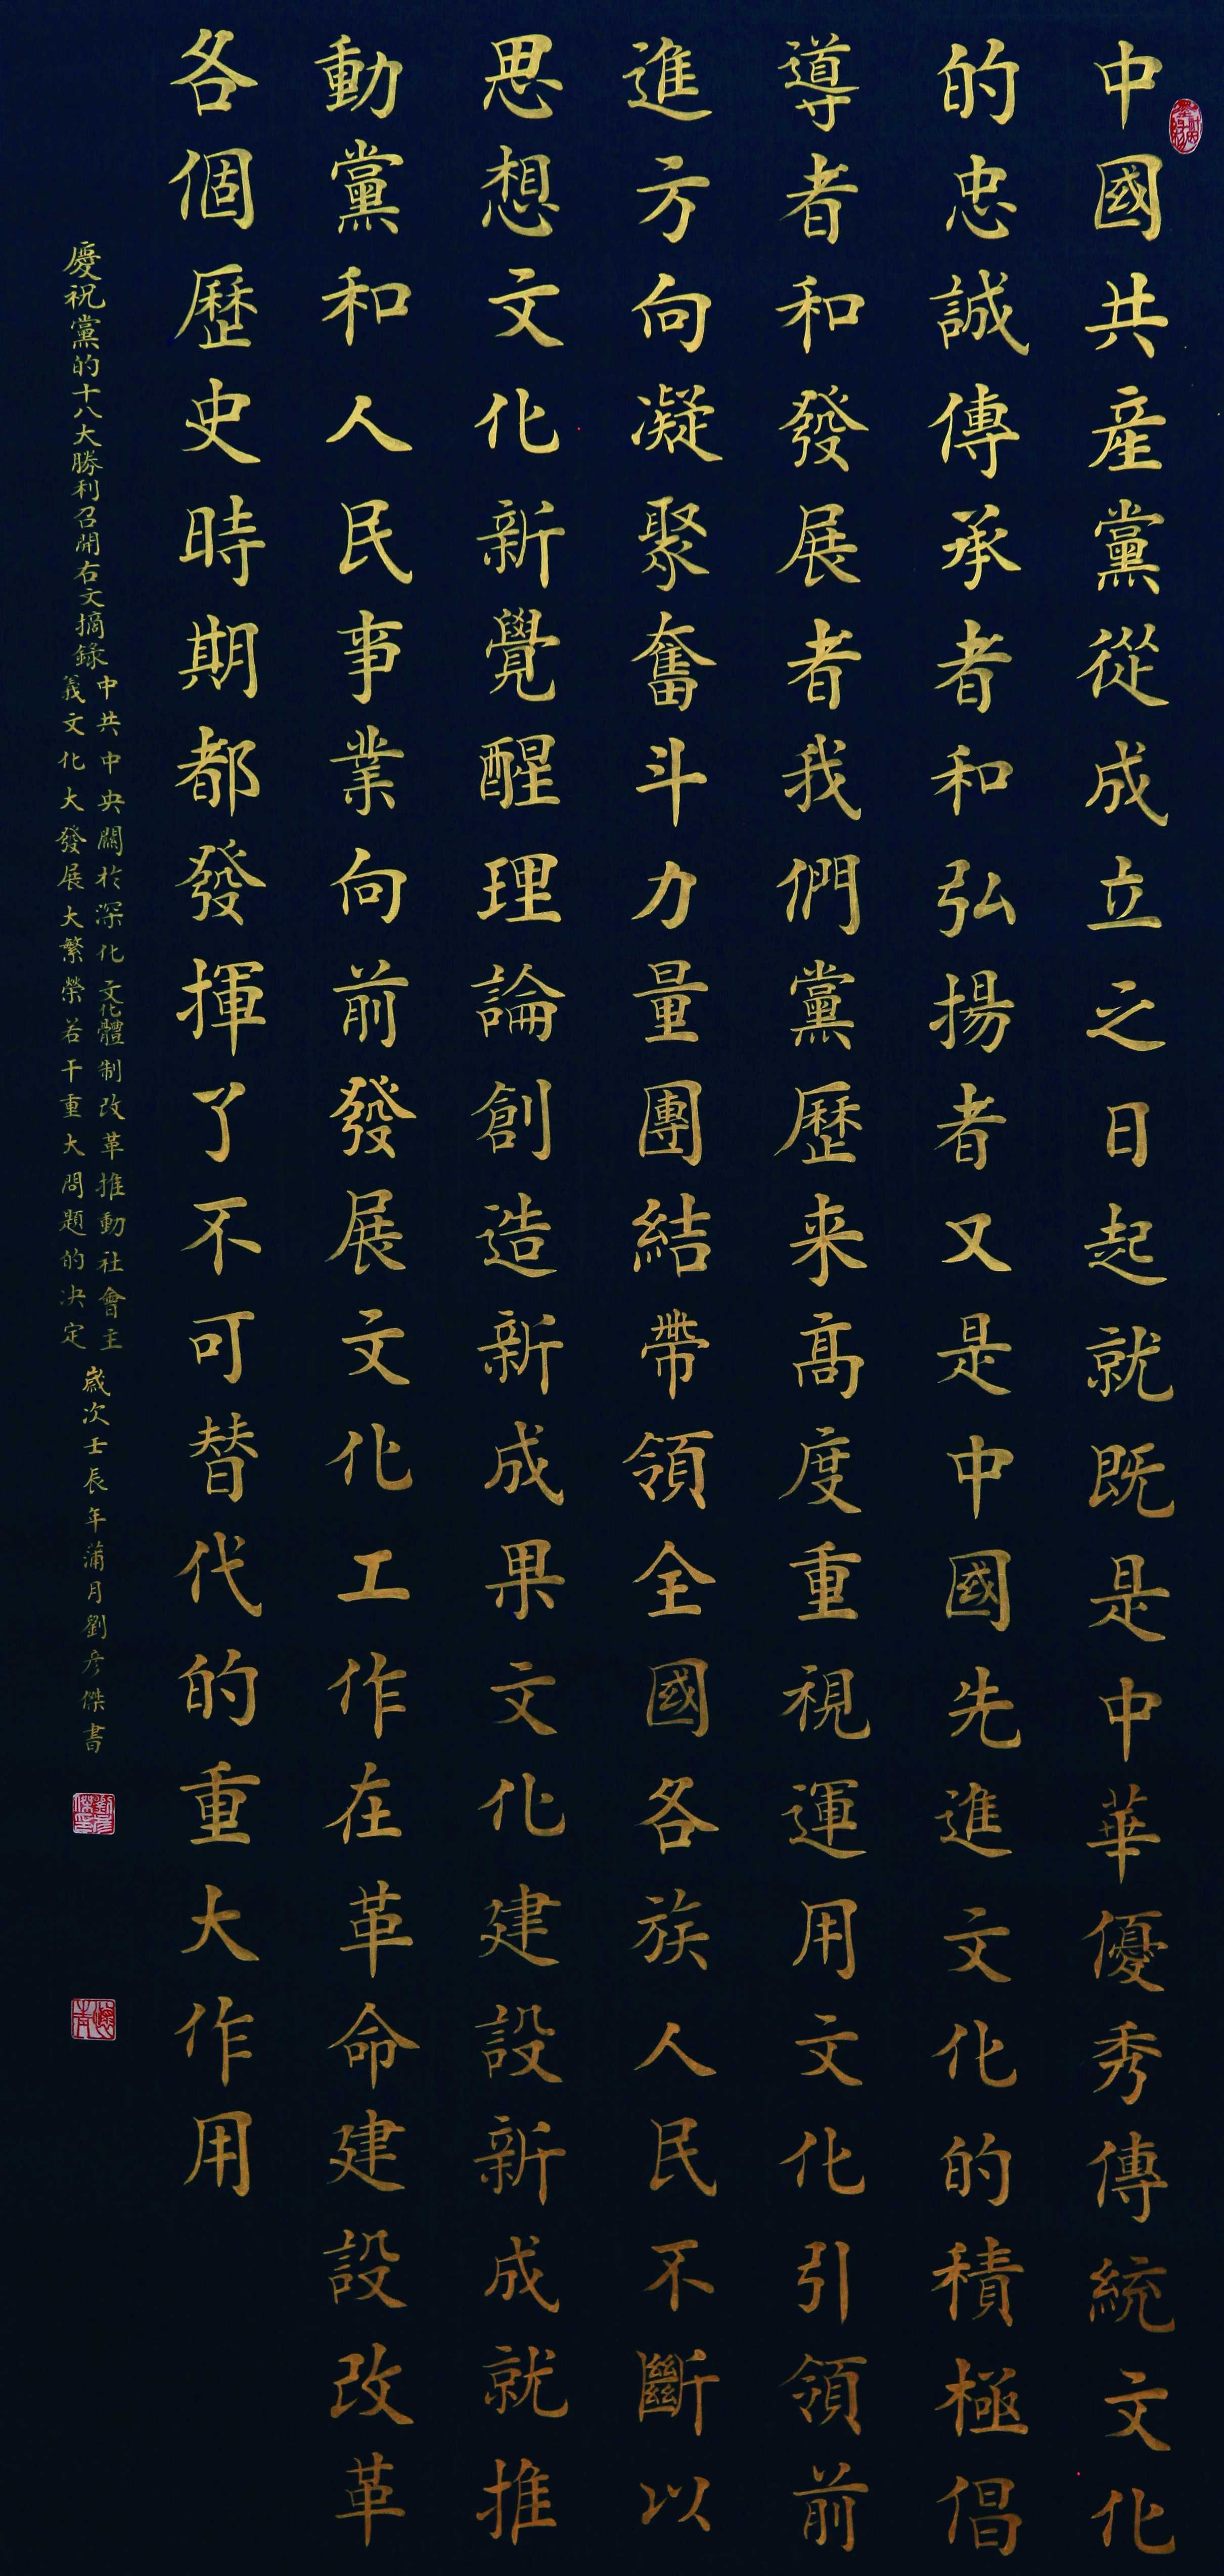 中國共産黨從成立之日起就既是中華優秀傳統文化
的忠誠傳承者和弘揚者又是中國先進文化的積極倡
導者和發展者我們黨歷来髙度重視運用文化引領前
進方向凝聚奮斗力量團結帶領全國各族人民不斷以
思想文化新覺醒理論創造新成果文化建設新成就推
動黨和人民事業向前發展文化工作在革命建設改革
各個歷史時期都發揮了不可替代的重大作用
慶祝黨的十八大勝利召開右文摘錄
中共中央關於深化文化體制改革推動社會主
義文化大發展大繁榮若干重大問題的决定
歲次壬辰年蒲月劉彦傑書